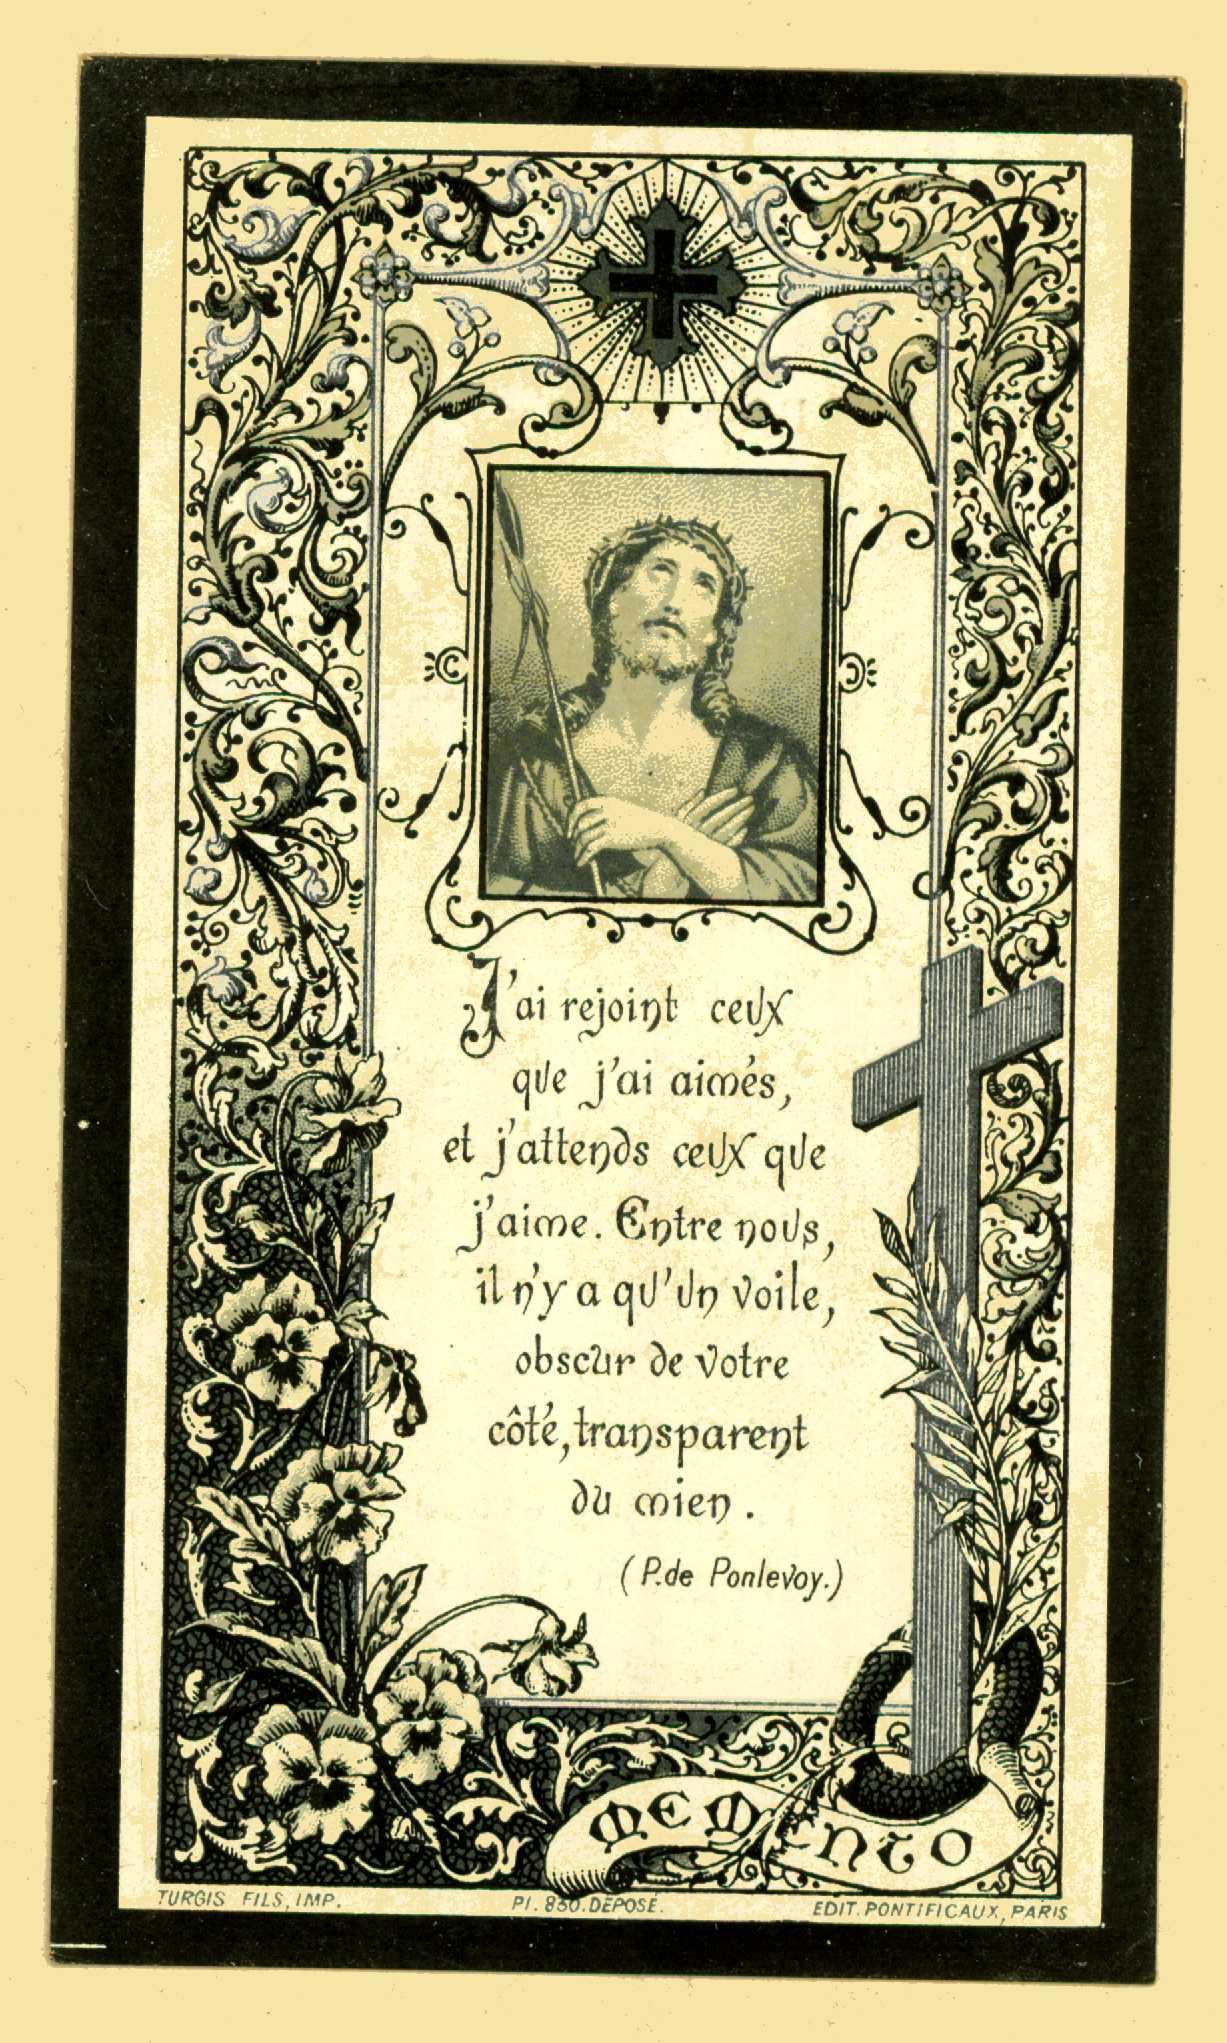 J'ai rejoint ceux
que j'ai aimés,
et j'attends ceux que
j'aime. Entre nous,
il n'y a qu'un voile,
obscur de votre
côté, transparent
du mien.
(P. de Ponlevoy.)
MEMENTO
TURGIS FILS, IMP.
Pl. 850. DÉPOSÉ.
EDIT. PONTIFICAUX, PARIS